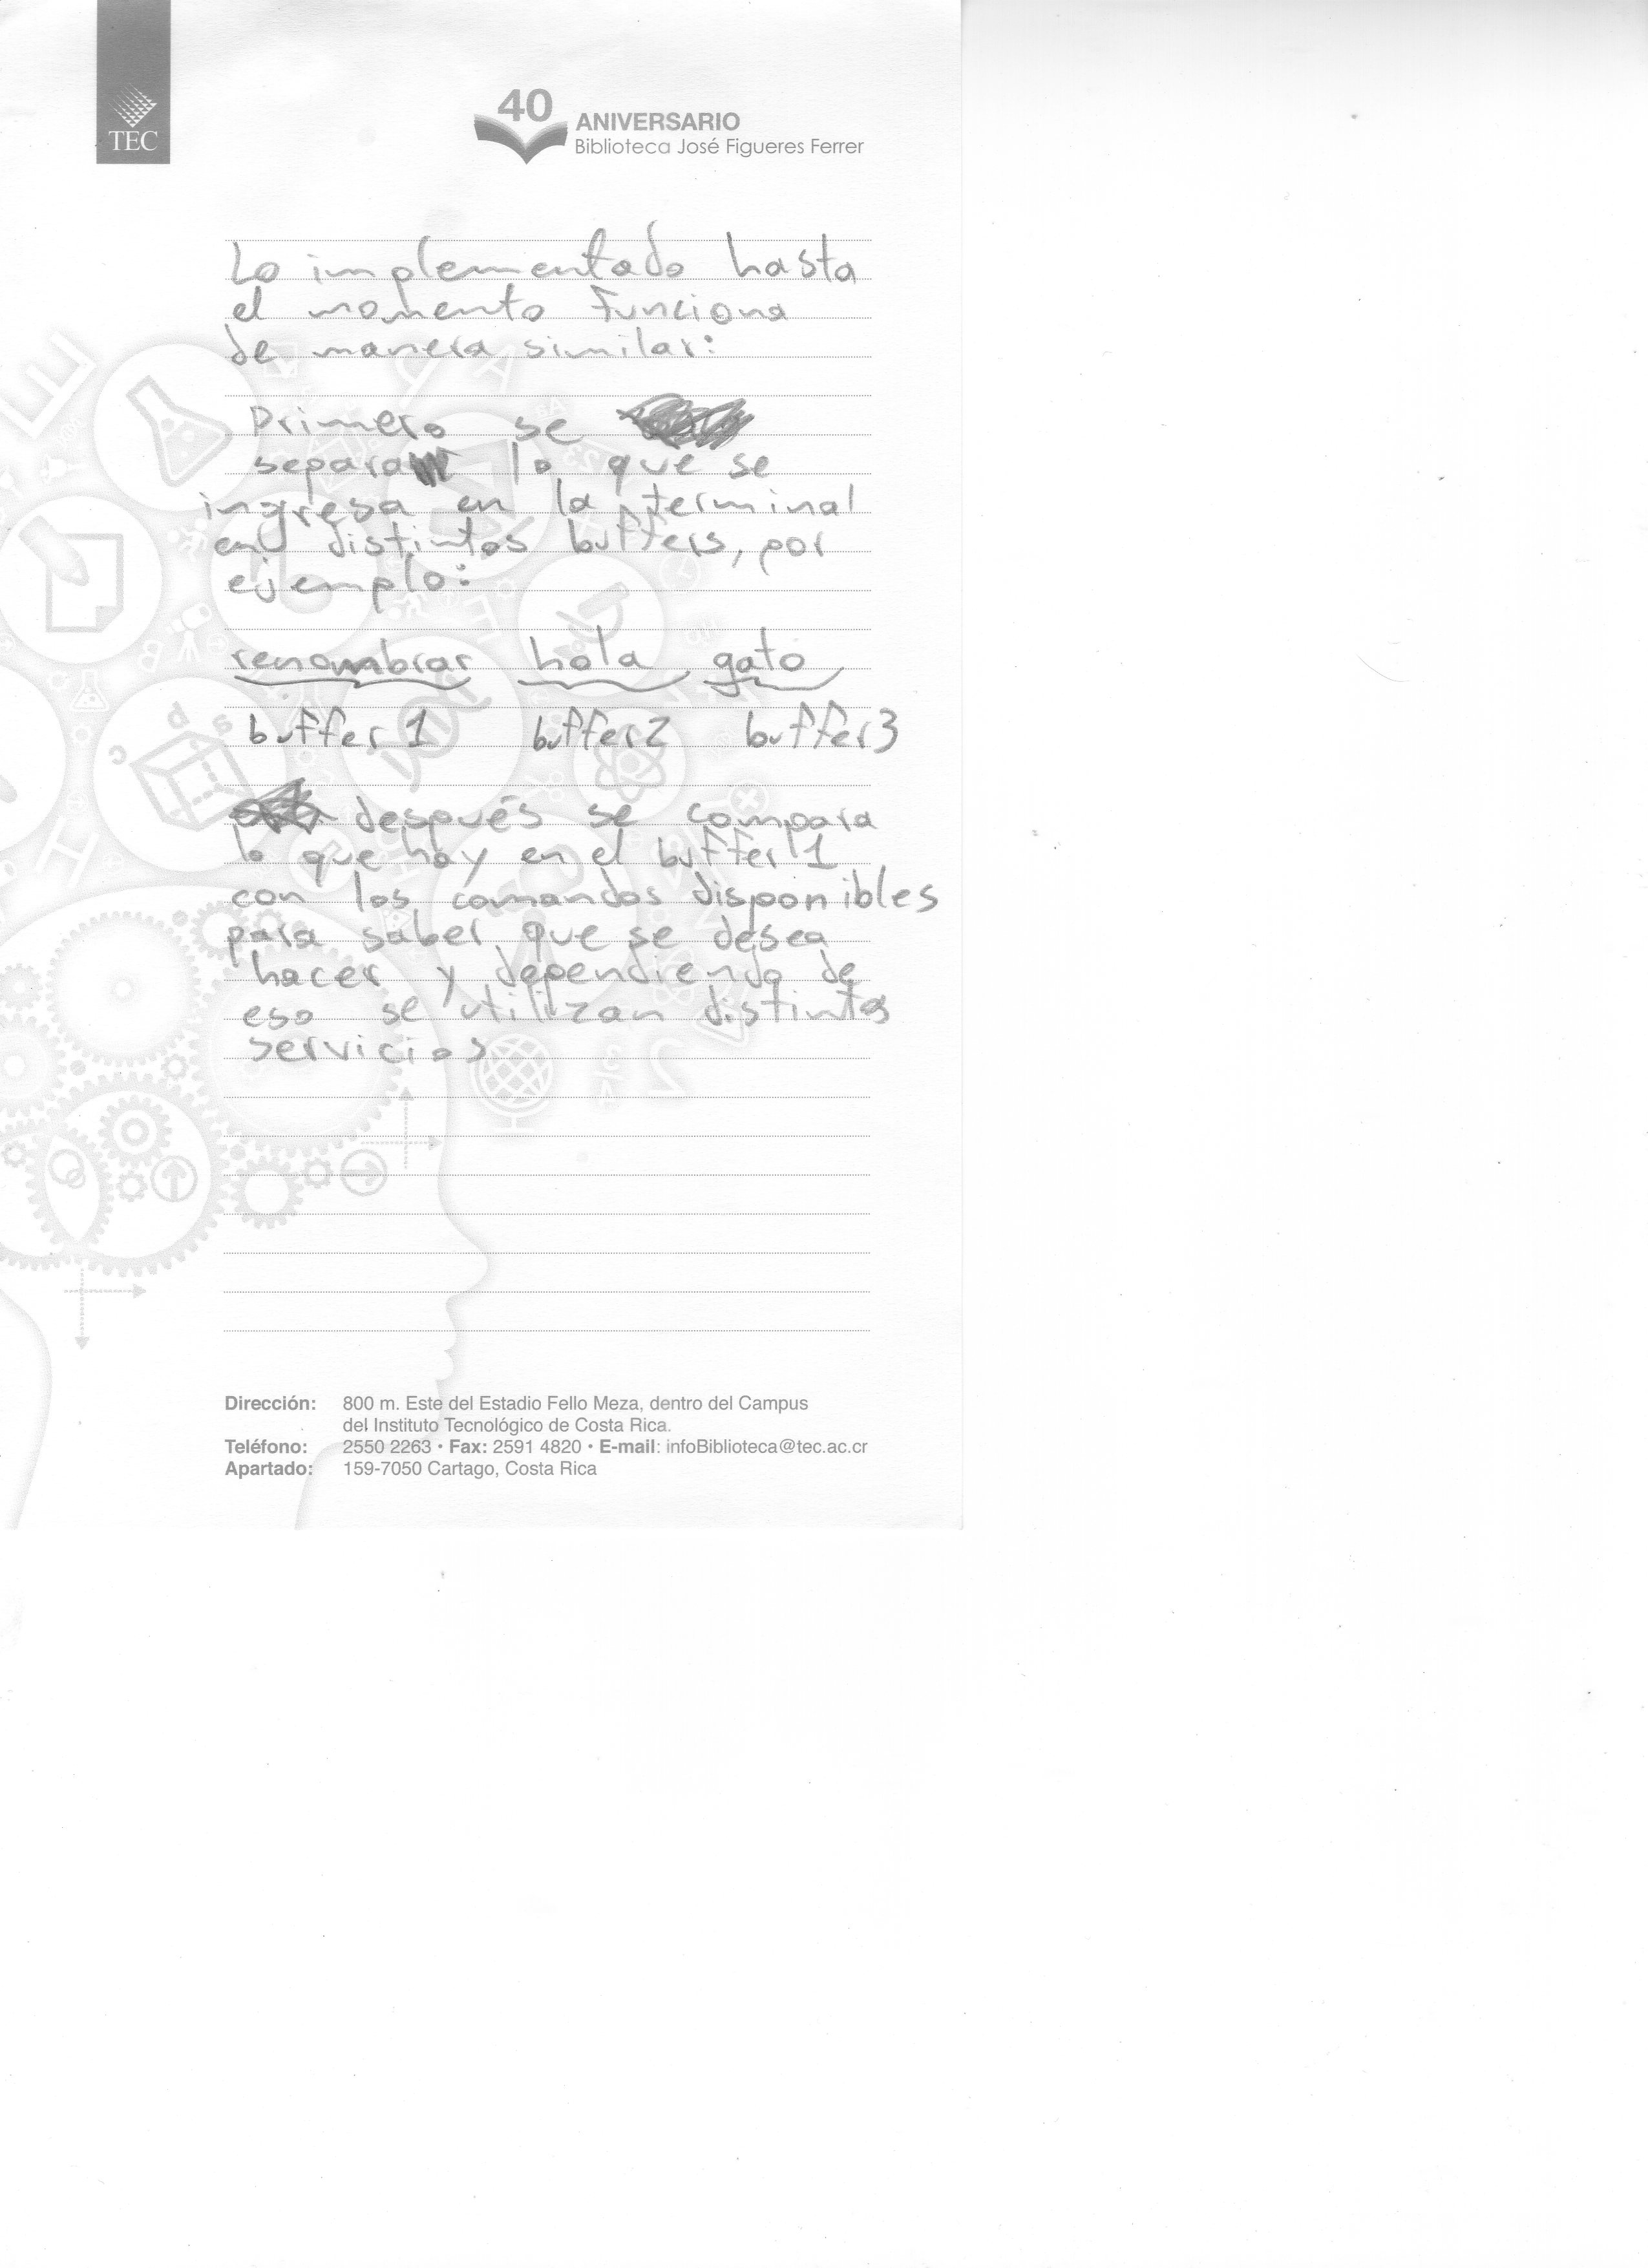 TEC
40
ANIVERSARIO
Biblioteca José Figueres Ferrer
Lo implementado hasta
el momento funciona
de manera similar:
Primero se
separa lo que se
ingresa en la terminal
en distintos buffers, por
ejemplo:
renombrar hola gato
buffer 1 buffer2 buffer3
después se compara
lo que hay en el buffer 1
con los comandos disponibles
para saber que se desea
hacer y dependiendo de
eso se utilizan distintos
servicios
Dirección: 800 m. Este del Estadio Fello Meza, dentro del Campus
del Instituto Tecnológico de Costa Rica.
Teléfono: 2550 2263 • Fax: 2591 4820 • E-mail: infoBiblioteca@tec.ac.cr
Apartado: 159-7050 Cartago, Costa Rica